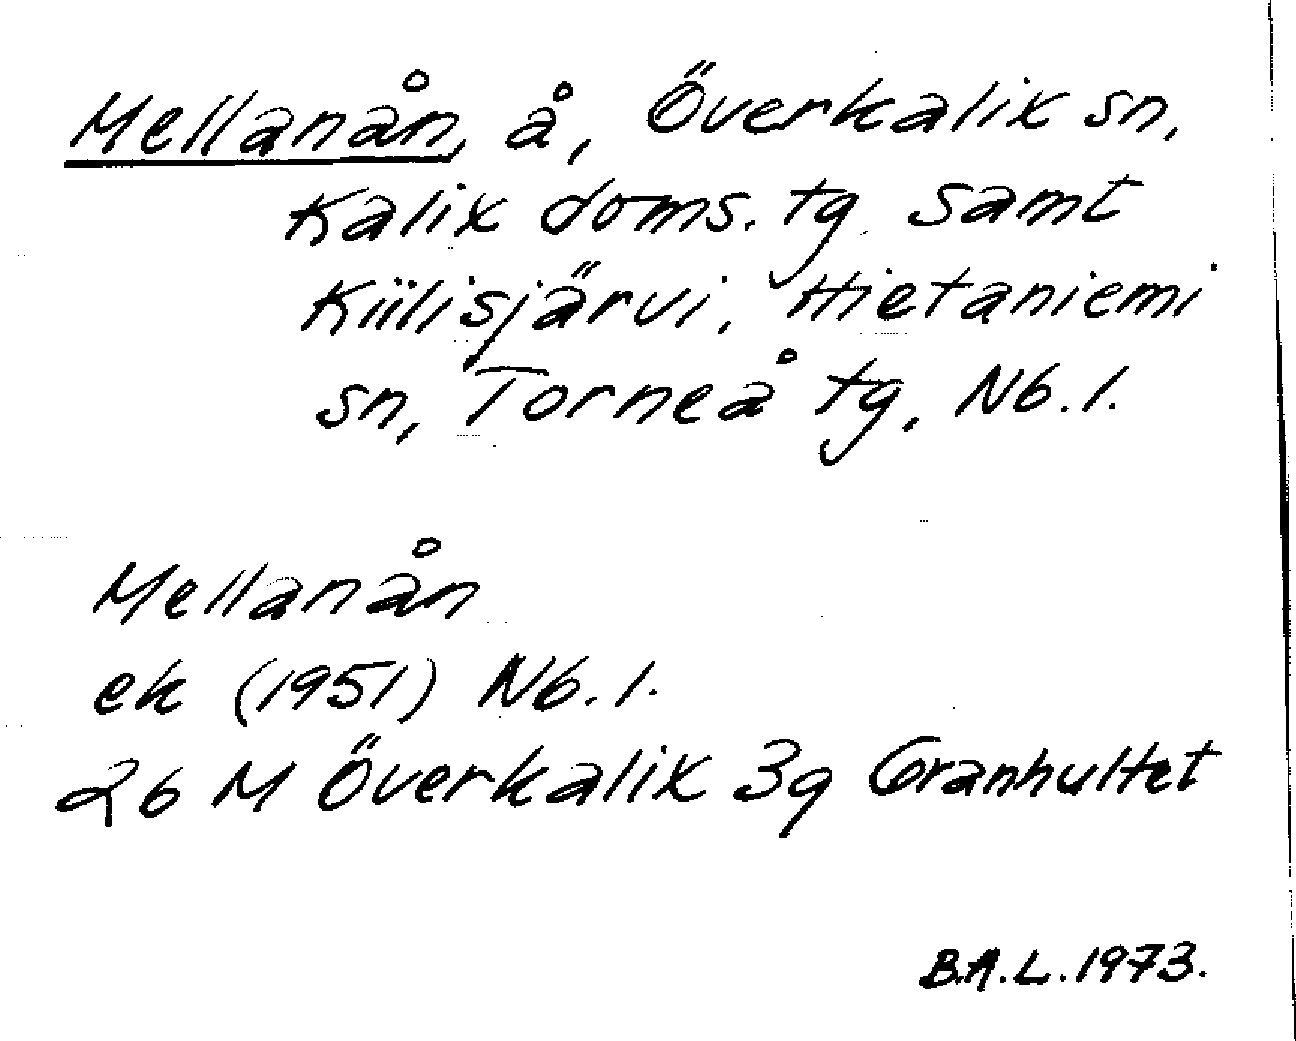 Mellanån, å, Överkalix sn,
Kalix doms. tg samt
Kiilisjärvi, Hietaniemi
sn, Torneå tg, Nb. l.
Mellanån
ek (1951) Nb. l.
26 M Överkalix 3g Granhultet
B.A.L. 1973.